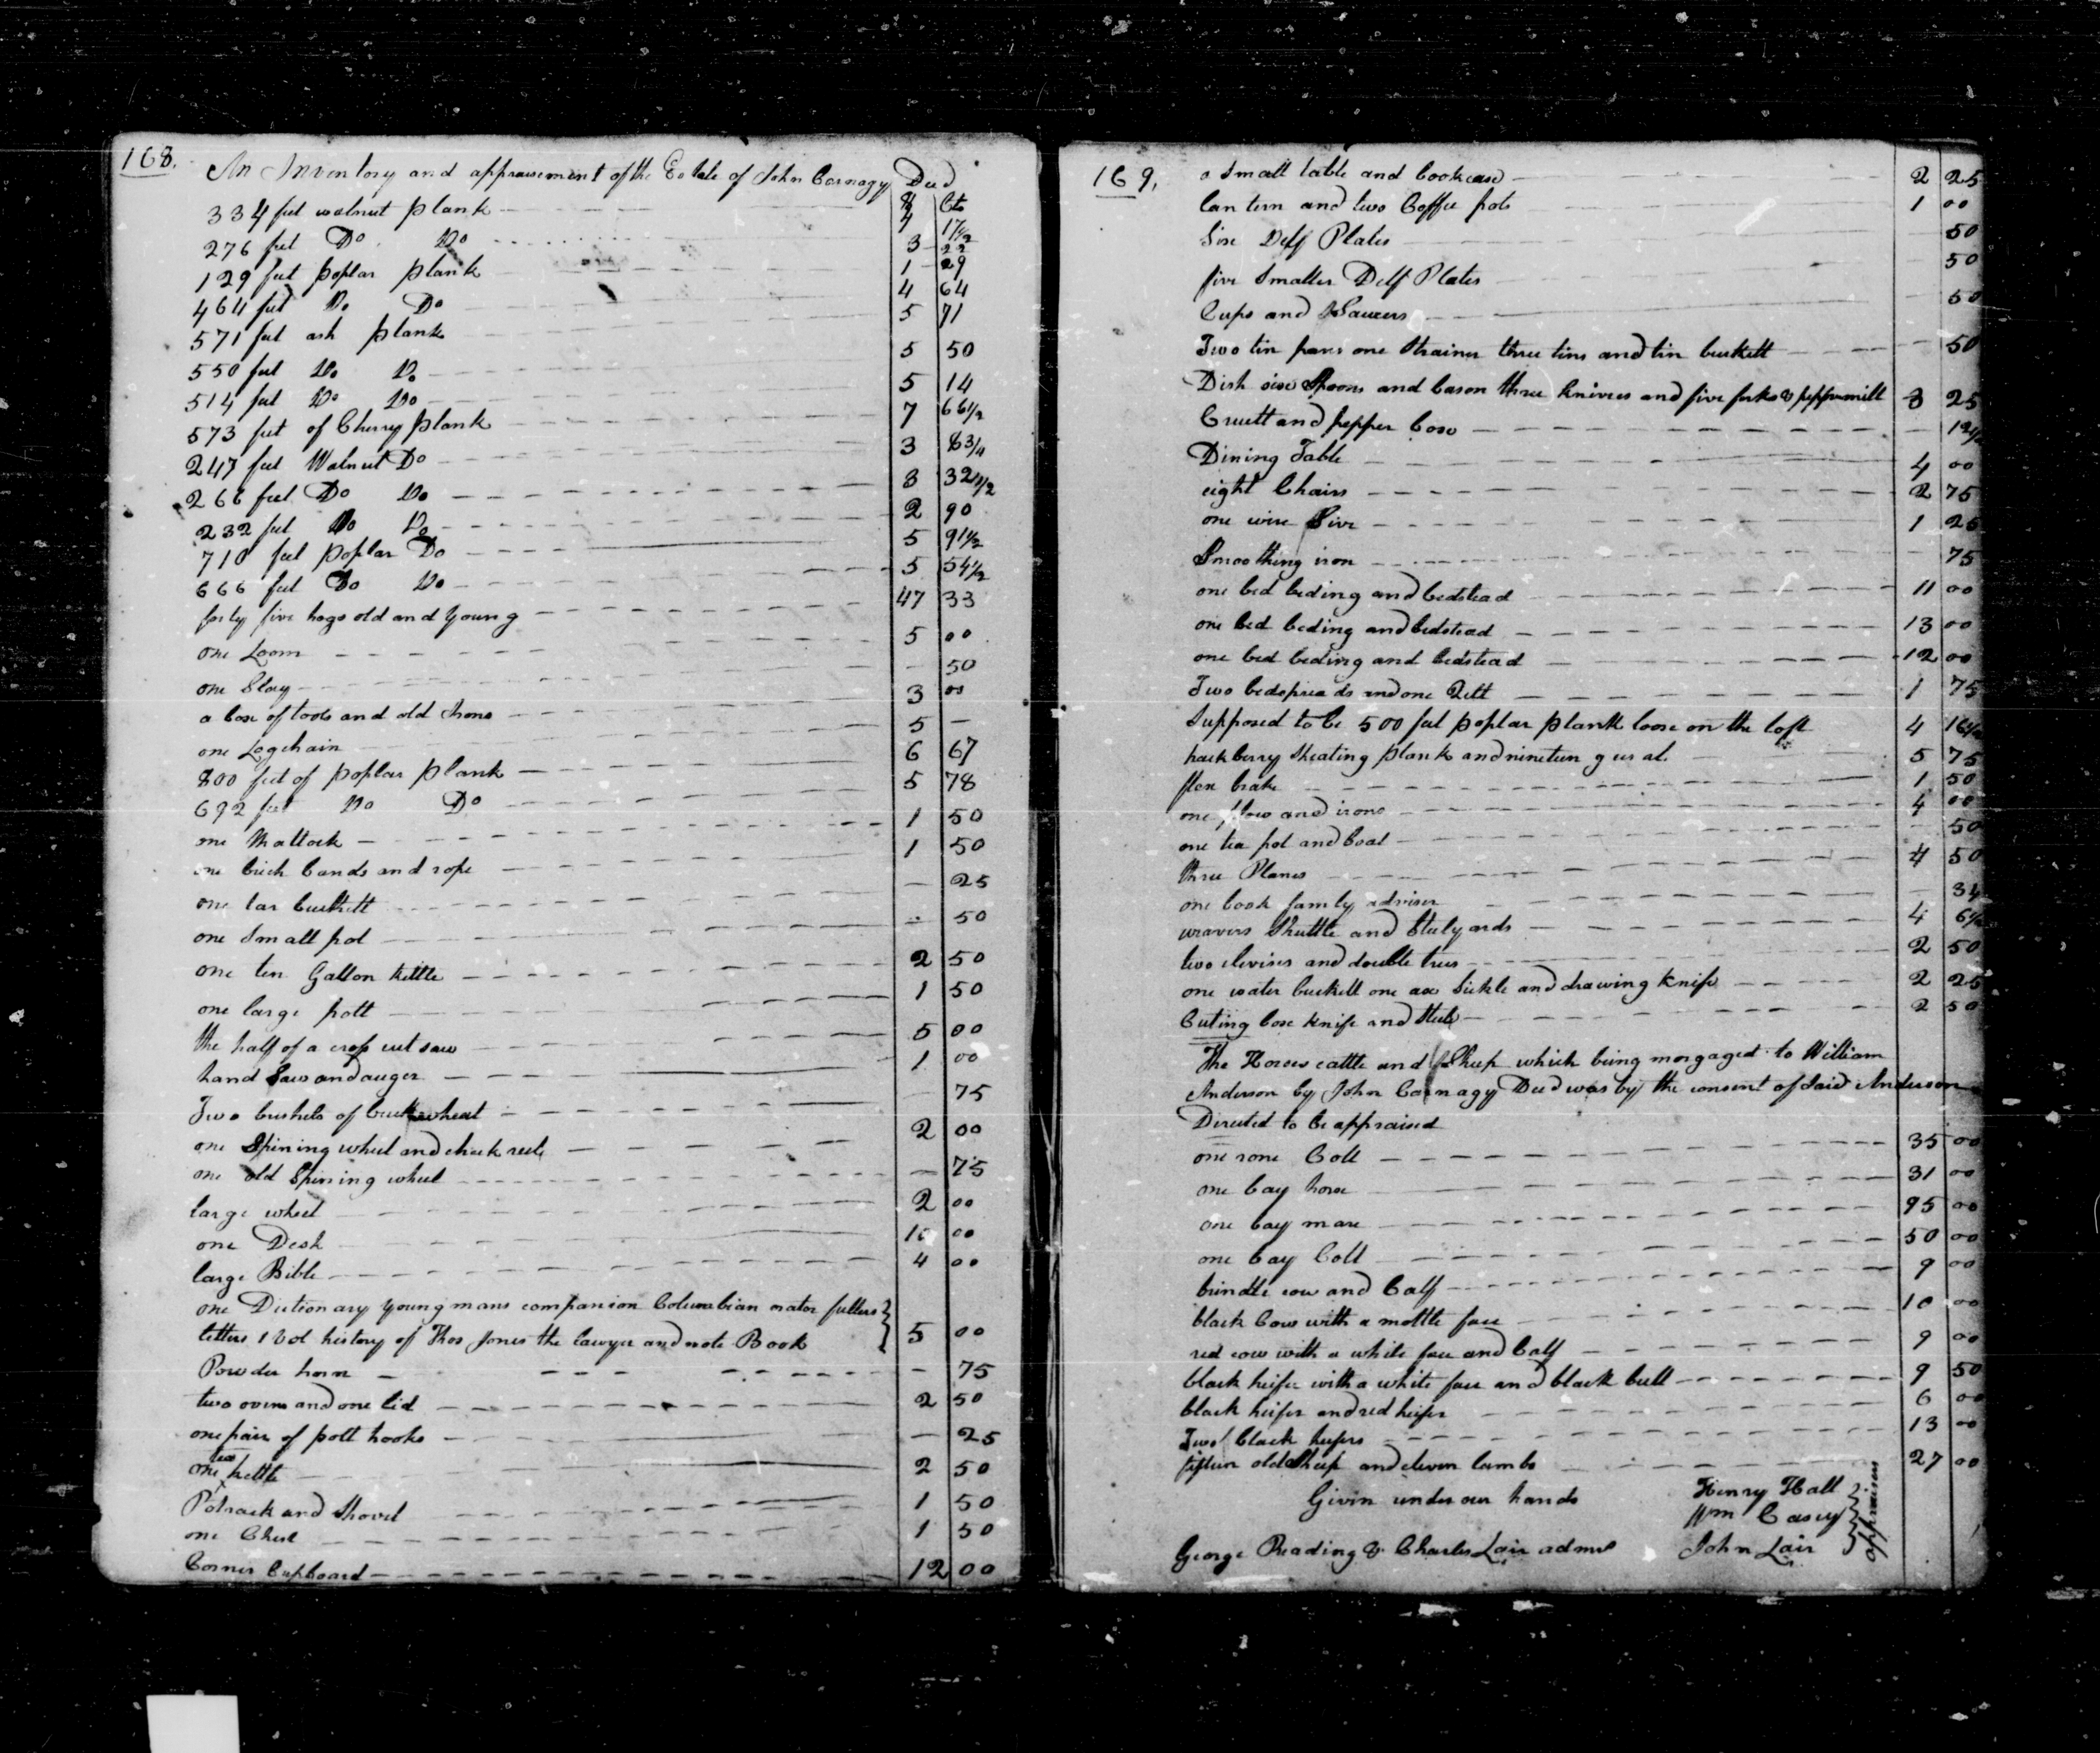 168.
An Inventory and appraisement of the Estate of John Carnagy Decd
$ Cts
334 feet walnut plank 4 17 1/2
276 feet Do Do 3 22
129 feet poplar plank 1 29
464 feet Do Do 4 64
571 feet ash plank 5 71
550 feet Do Do 5 50
514 feet Do Do 5 14
573 feet of Cherry plank 7 66 1/2
247 feet Walnut Do 3 8 3/4
266 feet Do Do 3 32 1/2
232 feet Do Do 2 90
710 feet poplar Do 5 91 1/2
666 feet Do Do 5 54 1/2
forty five hogs old and young 47 33
one Loom 5 00
one Slay 50
a box of tools and old Irons 3 00
one Logchain 5 —
800 feet of poplar plank 6 67
692 feet Do Do 5 78
one Mattock 1 50
one brich bands and rope 1 50
one tar buckett 25
one Small pot 50
one ten Gallon kettle 2 50
one large pott 1 50
the half of a cross cut saw 5 00
hand Saw and auger 1 00
Two bushels of buckwheat 75
one Spining wheel and check reel 2 00
one old Spinning wheel 75
large wheel 2 00
one Desk 10 00
large Bible 4 00
one Dictionary young mans companion Columbian orator fullers
letters 1 Vol history of Thos Jones the Lawyer and note Book 5 00
Powder horn 75
two ovens and one lid 2 50
one pair of pott hooks 25
one tea kettle 2 50
Potrack and Shovel 1 50
one Chest 1 50
Corner Cupboard 12 00
169,
a Small table and bookcase 2 25
lantern and two Coffee pots 1 00
Six Delf Plates 50
five Smaller Delf Plates 50
Cups and Saucers 50
Two tin pans one Strainer three tins and tin buckett 50
Dish six Spoons and bason three knives and five forks & peppermill 3 25
Cruett and pepper box 12 1/2
Dining Table 4 00
eight Chairs 2 75
one wire Sive 1 25
Smoothing iron 75
one bed beding and bedstead 11 00
one bed beding and bedstead 13 00
one bed beding and bedstead 12 00
Two bedspreads and one Qilt 1 75
Supposed to be 500 feet poplar plank loose on the loft 4 16 1/2
hackberry Sheating plank and nineteen geese at 5 75
flax brake 1 50
one plow and irons 4 00
one tea pot and boat 50
three Planes 4 50
one book family adviser 34
weavers Shuttle and Stelyards 4 6 1/4
two clevises and double trees 2 50
one water buckett one axe Sickle and drawing knife 2 25
Cuting box knife and Steel 2 50
The Horses cattle and Sheep which being morgaged to William
Anderson by John Carnagy Decd was by the consent of said Anderson
Directed to be appraised
one rone Colt 35 00
one bay horse 31 00
one bay mare 95 00
one bay Colt 50 00
brindle cow and Calf 9 00
black Cow with a mottle face 10 00
red cow with a white face and Calf 9 00
black heifer with a white face and black bull 9 50
black heifer and red heifer 6 00
Two black heifers 13 00
fifteen old Sheep and eleven lambs 27 00
Givin under our hands Henry Hall
Wm Casey
George Reading & Charles Lair admrs John Lair
appraisers